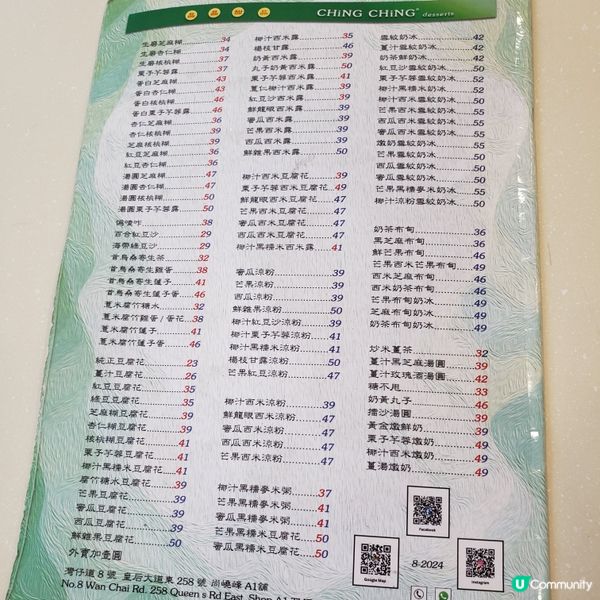 晶 晶 甜 品 CHiNG CHiNG® desserts
生磨芝麻糊 34
生磨杏仁糊 34
生磨核桃糊 37
栗子芋蓉露 37
蛋白芝麻糊 43
蛋白杏仁糊 43
蛋白核桃糊 46
蛋白栗子芋蓉露 46
杏仁芝麻糊 36
杏仁核桃糊 39
芝麻核桃糊 39
紅豆芝麻糊 36
紅豆杏仁糊 36
湯圓芝麻糊 47
湯圓杏仁糊 47
湯圓核桃糊 50
湯圓栗子芋蓉露 50
喳咋 38
百合紅豆沙 29
海帶綠豆沙 29
首烏桑寄生茶 32
首烏桑寄生雞蛋 38
首烏桑寄生蓮子 41
首烏桑寄生蓮子蛋 46
薏米腐竹糖水 32
薏米腐竹雞蛋/蛋花 38
薏米腐竹蓮子 41
薏米腐竹蓮子蛋 46
純正豆腐花 23
薑汁豆腐花 26
紅豆豆腐花 35
綠豆豆腐花 35
芝麻糊豆腐花 39
杏仁糊豆腐花 39
核桃糊豆腐花 41
栗子芋蓉豆腐花 41
椰汁黑糯米豆腐花 41
腐竹糖水豆腐花 39
芒果豆腐花 39
蜜瓜豆腐花 39
西瓜豆腐花 39
鮮雜果豆腐花 50
外賣加壹圓
椰汁西米露 35
楊枝甘露 46
奶黃西米露 39
丸子奶黃西米露 50
栗子芋蓉西米露 41
薏仁椰汁西米露 39
紅豆沙西米露 39
鮮龍眼西米露 39
蜜瓜西米露 39
芒果西米露 39
西瓜西米露 39
鮮雜果西米露 50
椰汁西米豆腐花 39
栗子芋蓉西米豆腐花 49
鮮龍眼西米豆腐花 47
芒果西米豆腐花 47
西瓜西米豆腐花 47
蜜瓜西米豆腐花 47
椰汁黑糯米西米露 41
蜜瓜涼粉 39
芒果涼粉 39
西瓜涼粉 39
鮮雜果涼粉 50
椰汁紅豆沙涼粉 39
椰汁栗子芋蓉涼粉 41
椰汁黑糯米涼粉 41
楊枝甘露涼粉 50
芒果紅豆涼粉 47
椰汁西米涼粉 39
鮮龍眼西米涼粉 47
西瓜西米涼粉 47
蜜瓜西米涼粉 47
芒果西米涼粉 47
椰汁黑糯麥米粥 37
芒果黑糯麥米粥 41
蜜瓜黑糯麥米粥 41
芒果黑糯米豆腐花 50
蜜瓜黑糯米豆腐花 50
雪紋奶冰 42
薑汁雪紋奶冰 42
奶茶鮮奶冰 42
紅豆沙雪紋奶冰 52
栗子芋蓉雪紋奶冰 52
椰汁黑糯米奶冰 52
椰汁西米雪紋奶冰 50
芒果西米雪紋奶冰 55
西瓜西米雪紋奶冰 55
蜜瓜西米雪紋奶冰 55
燉奶雪紋奶冰 55
芒果雪紋奶冰 50
西瓜雪紋奶冰 50
蜜瓜雪紋奶冰 50
芒果黑糯麥米奶冰 55
椰汁涼粉雪紋奶冰 50
奶茶布甸 36
黑芝麻布甸 36
鮮芒果布甸 36
芒果西米芒果布甸 49
西米芝麻布甸 46
西米奶茶布甸 46
芒果布甸奶冰 49
芝麻布甸奶冰 49
奶茶布甸奶冰 49
炒米薑茶 32
薑汁黑芝麻湯圓 39
薑汁玫瑰酒湯圓 42
糖不甩 33
奶黃丸子 46
擂沙湯圓 39
黃金燉鮮奶 39
栗子芋蓉燉奶 49
椰汁西米燉奶 49
薑湯燉奶 49
Facebook
Google Map
Instagram
8-2024
灣仔道 8 號 皇后大道東 258 號 尚翹峰 A1舖
No.8 Wan Chai Rd. 258 Queen s Rd East, Shop A1
U Community